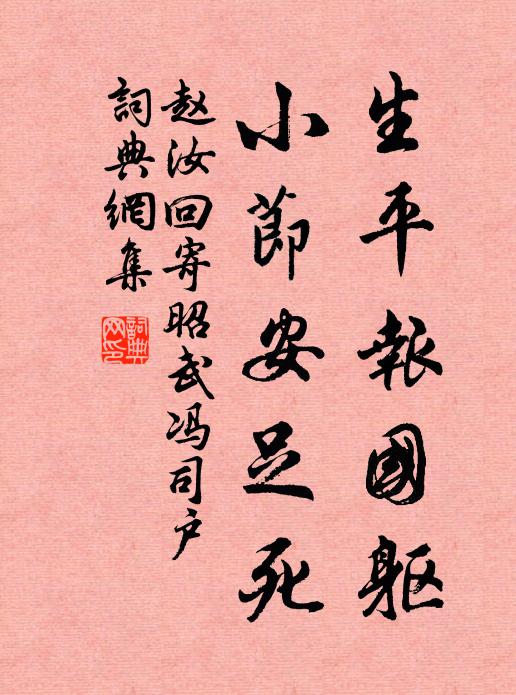 生平報國軀
小節安足死
赵汝回寄昭武冯司户
詞典網集
詞典网印